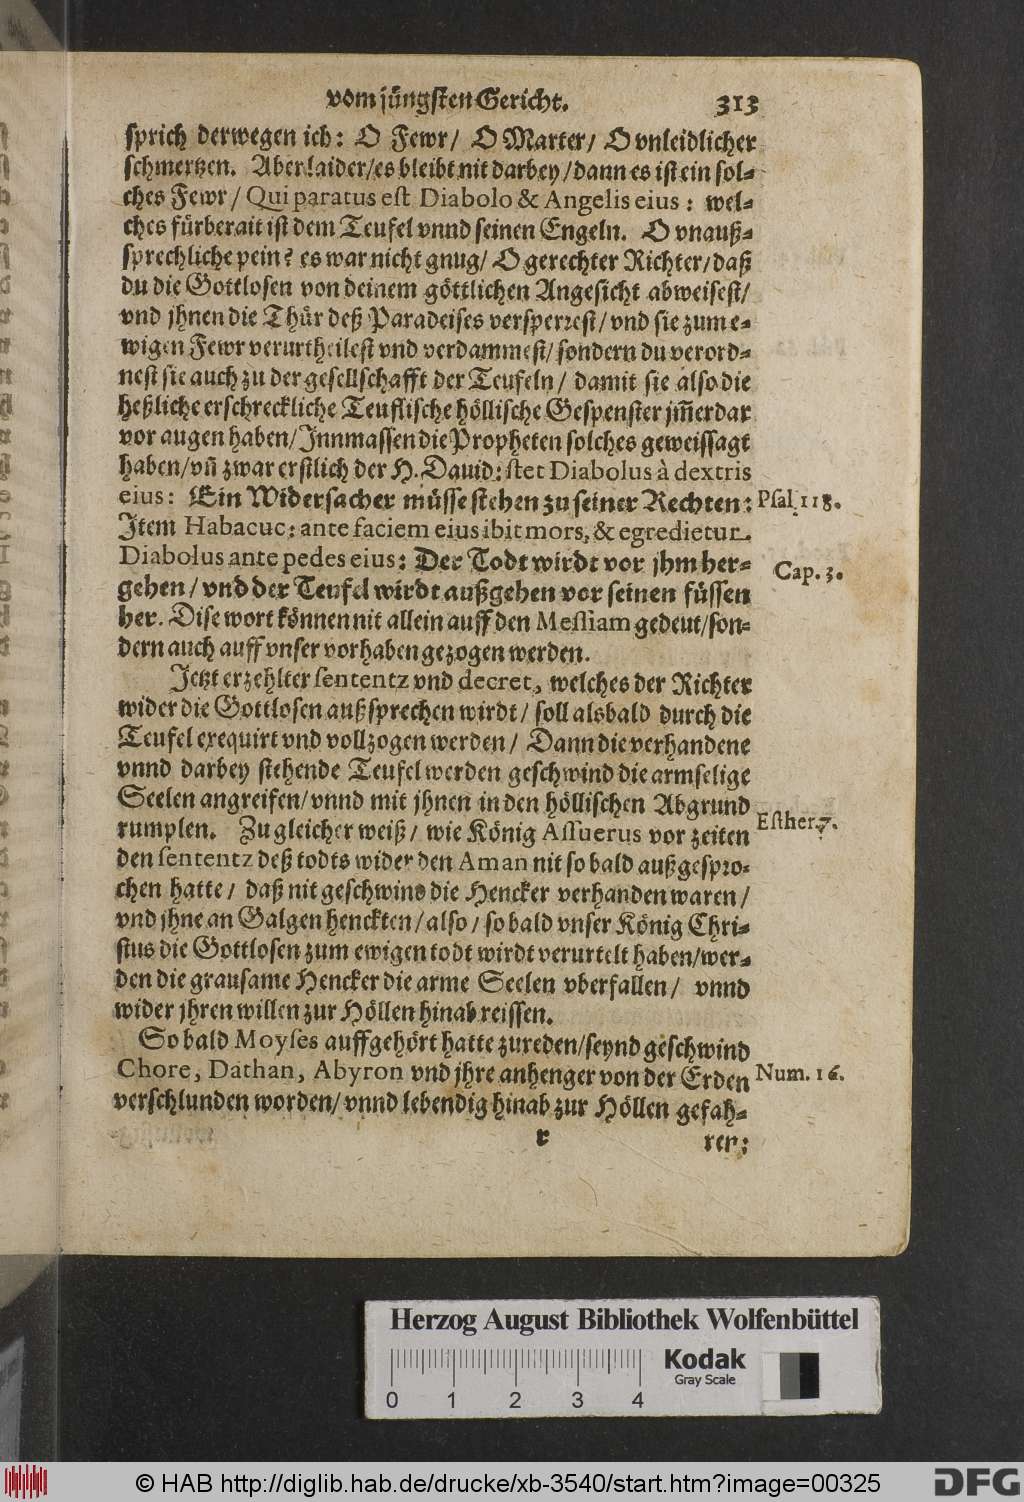 vom jüngsten Gericht. 313
sprich derwegen ich: O Fewr/ O Marter/ O vnleidlicher
schmertzen. Aber laider/es bleibt nit darbey/dann es ist ein sol-
ches Fewr/ Qui paratus est Diabolo & Angelis eius: wel-
ches fürberait ist dem Teufel vnnd seinen Engeln. O vnauß-
sprechliche pein? es war nicht gnug/ O gerechter Richter/daß
du die Gottlosen von deinem göttlichen Angesicht abweisest/
vnd jhnen die Thür deß Paradeises versperrest/vnd sie zum e-
wigen Fewr verurtheilest vnd verdammest/sondern du verord-
nest sie auch zu der gesellschafft der Teufeln/ damit sie also die
heßliche erschreckliche Teuflische höllische Gespenster jm̃erdar
vor augen haben/Jnnmassen die Propheten solches geweissagt
haben/vñ zwar erstlich der H. Dauid: stet Diabolus à dextris
eius: Ein Widersacher müsse stehen zu seiner Rechten: Psal. 118.
Jtem Habacuc: ante faciem eius ibit mors, & egredietur
Diabolus ante pedes eius: Der Todt wirdt vor jhm her- Cap. 3.
gehen/ vnd der Teufel wirdt außgehen vor seinen füssen
her. Dise wort können nit allein auff den Messiam gedeut/son-
dern auch auff vnser vorhaben gezogen werden.
Jetzt erzehlter sententz vnd decret, welches der Richter
wider die Gottlosen außsprechen wirdt/ soll alsbald durch die
Teufel exequirt vnd vollzogen werden/ Dann die verhandene
vnnd darbey stehende Teufel werden geschwind die armselige
Seelen angreifen/vnnd mit jhnen in den höllischen Abgrund
rumplen. Zu gleicher weiß/ wie König Assuerus vor zeiten Esther. 7.
den sententz deß todts wider den Aman nit so bald außgespro-
chen hatte/ daß nit geschwind die Hencker verhanden waren/
vnd jhne an Galgen henckten/also/ so bald vnser König Chri-
stus die Gottlosen zum ewigen todt wirdt verurtelt haben/wer-
den die grausame Hencker die arme Seelen vberfallen/ vnnd
wider jhren willen zur Höllen hinab reissen.
So bald Moyses auffgehört hatte zureden/seynd geschwind
Chore, Dathan, Abyron vnd jhre anhenger von der Erden Num. 16.
verschlunden worden/ vnnd lebendig hinab zur Höllen gefah-
r ren;
Herzog August Bibliothek Wolfenbüttel
Kodak
Gray Scale
0 1 2 3 4
© HAB http://diglib.hab.de/drucke/xb-3540/start.htm?image=00325
DFG